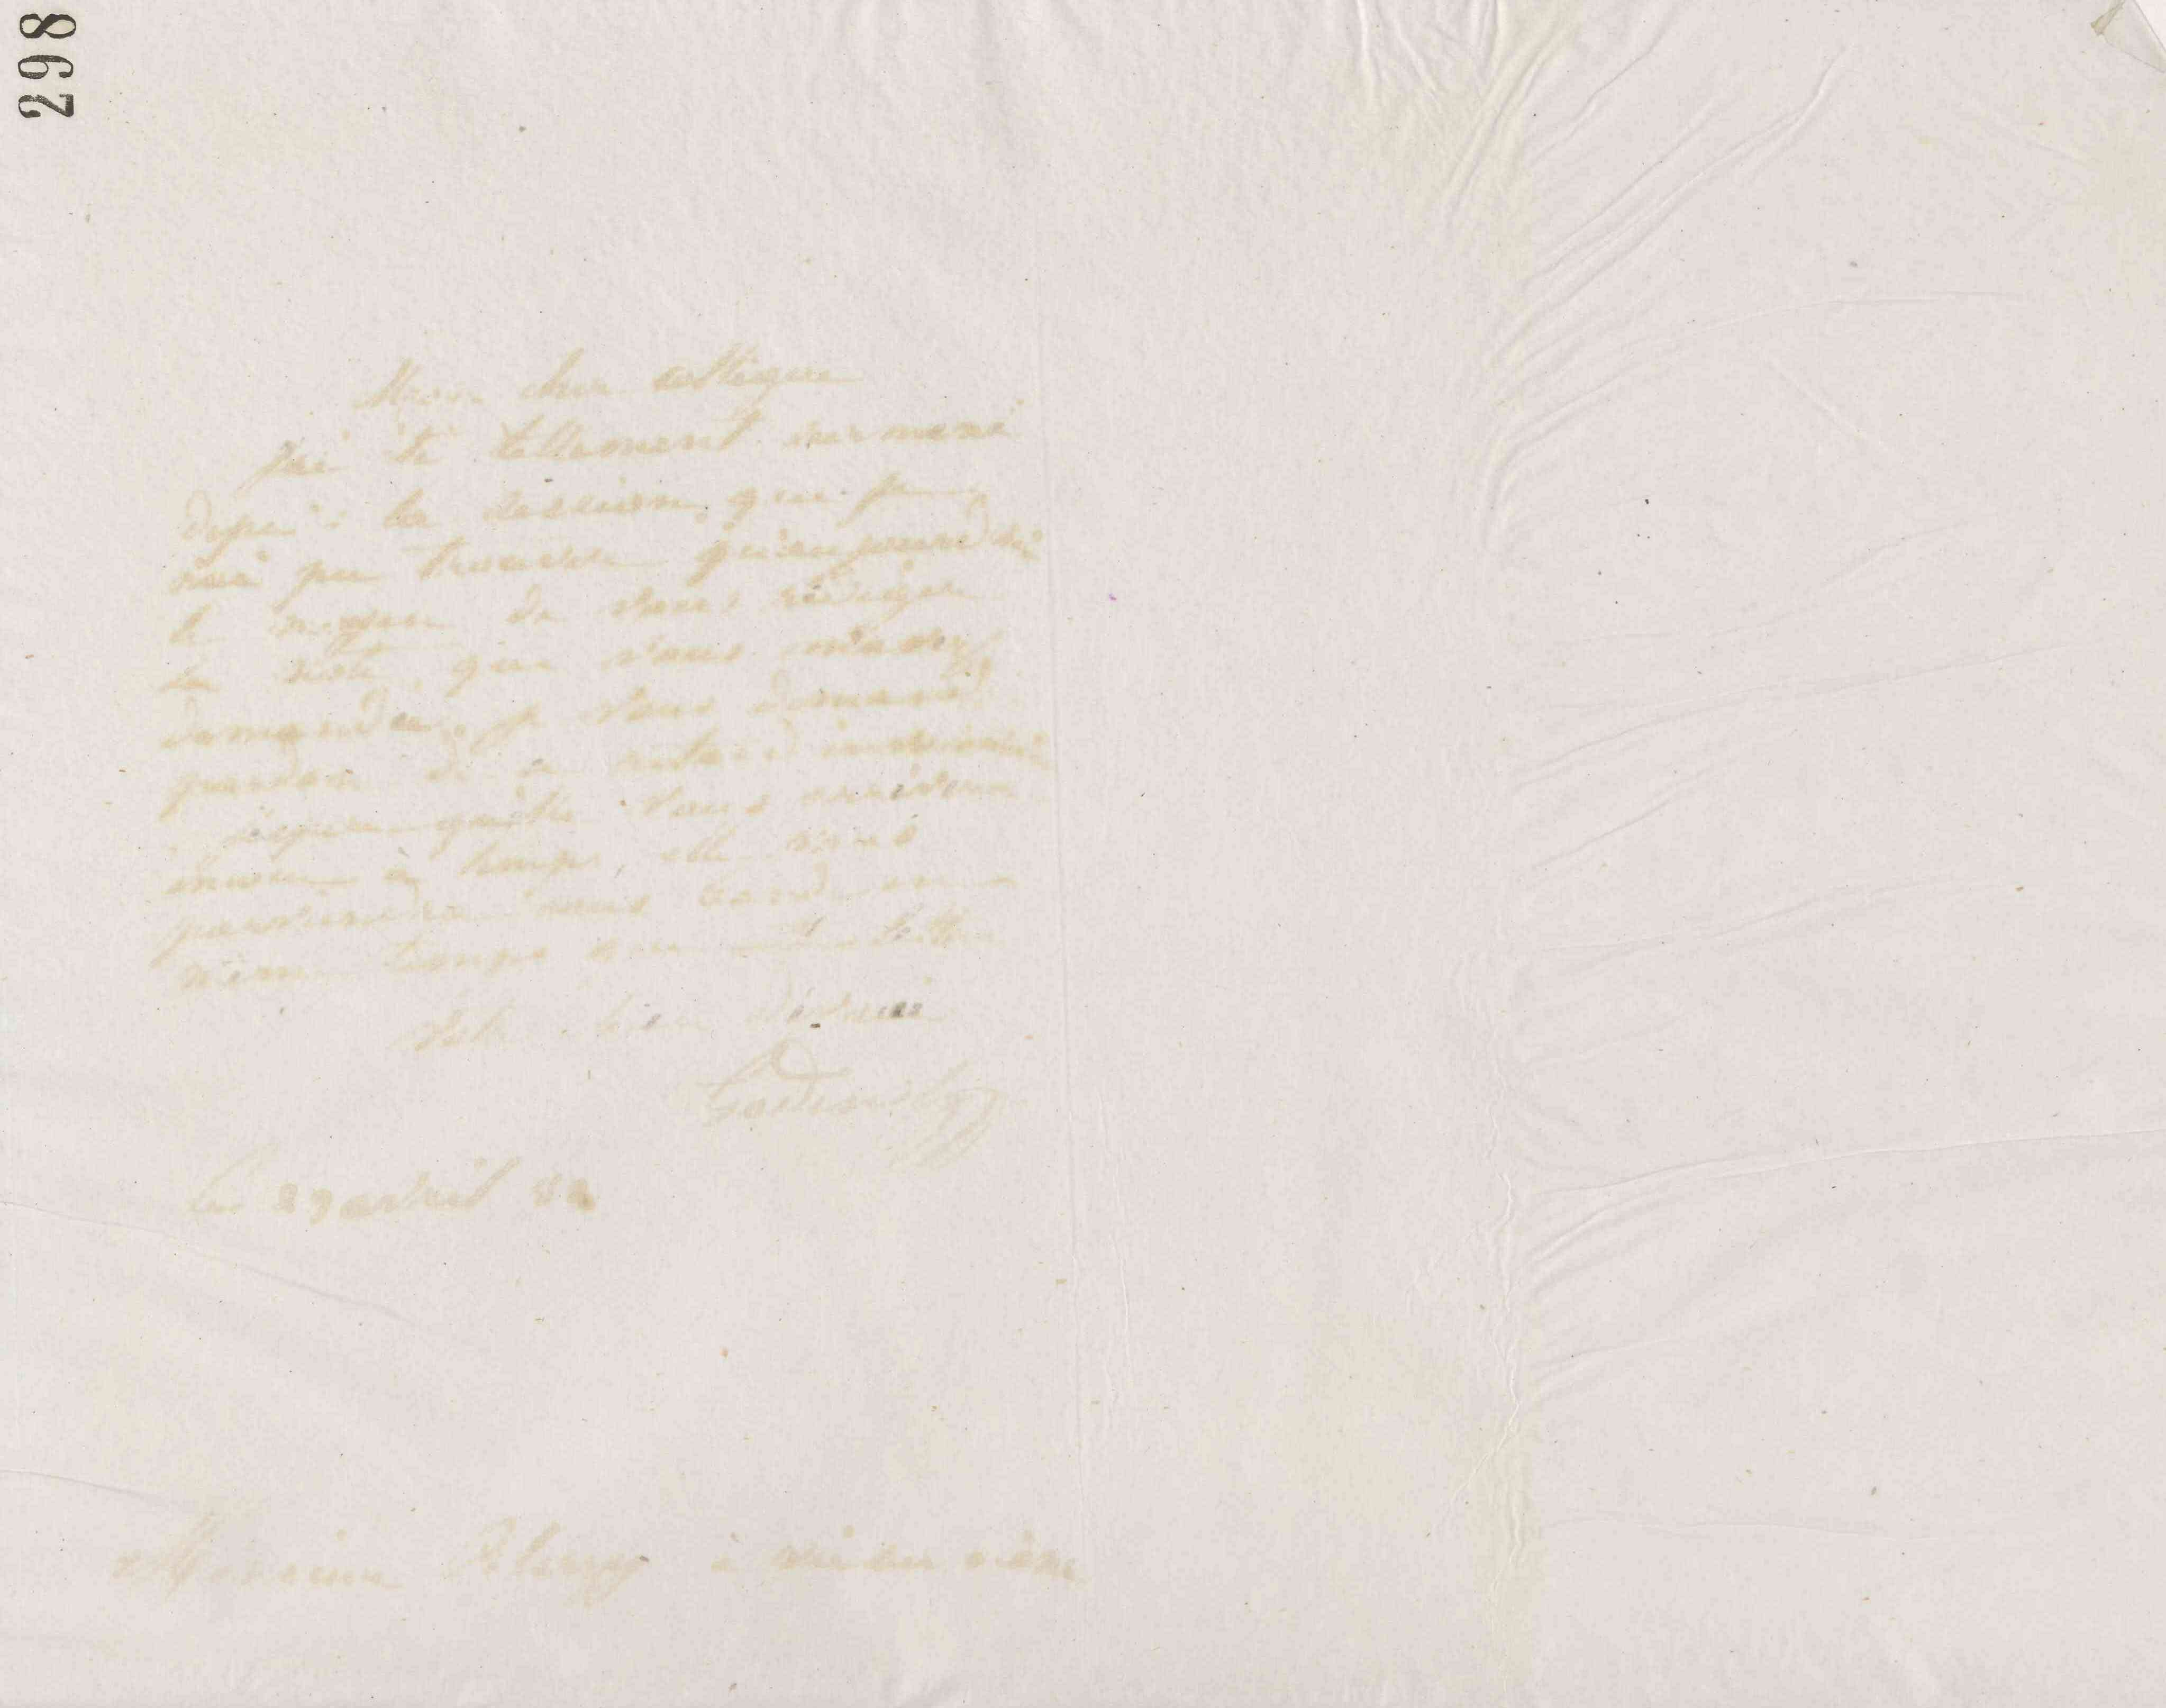 298
Mon cher collègue
J'ai été tellement surmené
depuis la session que je
n'ai pu trouver qu'aujourd'hui
le moyen de vous rédiger
la note que vous m'avez
demandée, je vous demande
pardon de ce retard
j'espère qu'elle vous arrivera
encore à temps, elle
parviendra sans doute en
même temps que cette lettre
Votre bien dévoué
Godin
Le 29 avril 82
Monsieur à